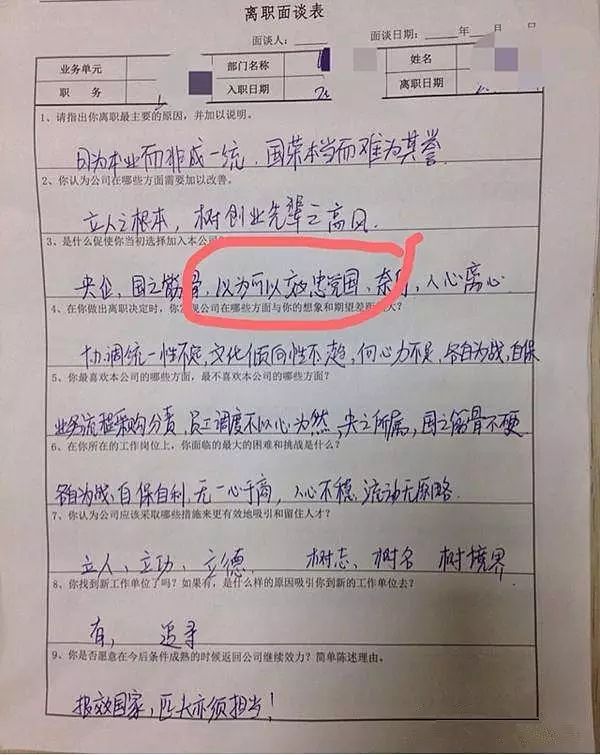 离职面谈表
面谈人： 面谈日期： 年 月 日
业务单元 部门名称 姓名
职务 入职日期 离职日期
1、请指出你离职最主要的原因，并加以说明。
因为本业而非成一统，国荣本当而难为其誉
2、你认为公司在哪些方面需要加以改善。
立人之根本，树创业先辈之高风.
3、是什么促使你当初选择加入本公司
央企，国之筋骨，以为可以效忠党国，奈何，人心离心
4、在你做出离职决定时，你 现公司在哪些方面与你的想象和期望差距 大？
协调统一性不定，文化倾向性不趋，何心力不足，各自为战，自保
5、你最喜欢本公司的哪些方面，最不喜欢本公司的哪些方面？
业务流程采购分责，员工调度不以心为然，央之所属，国之筋骨不硬
6、在你所在的工作岗位上，你面临的最大的困难和挑战是什么？
各自为战，自保自利，无一心于高，人心不稳，流动无原略.
7、你认为公司应该采取哪些措施来更有效地吸引和留住人才？
立人、立功、立德. 树志、树名 树境界
8、你找到新工作单位了吗？如果有，是什么样的原因吸引你到新的工作单位去？
有， 追寻
9、你是否愿意在今后条件成熟的时候返回公司继续效力？简单陈述理由。
报效国家，匹夫亦须担当！